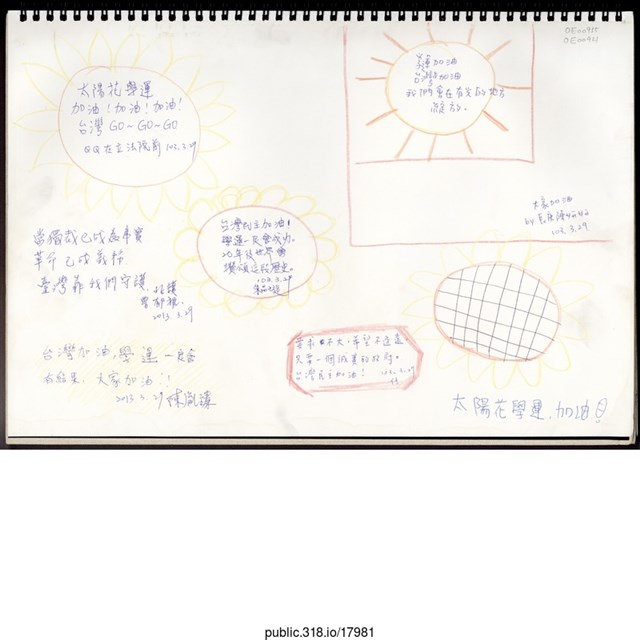 OE00915
OE00921
太陽花學運
加油！加油！加油！
台灣 GO~GO~GO
QQ在立法院前 102.3.29
加油
台灣加油
我們會在有光的地方
綻放。
大家加油
by
103.3.29
台灣民主加油！
學運一定會成功。
20年後世界會
讚頌這段歷史。
103.3.29
當獨裁已成為事實
革命已成義務
臺灣靠我們守護
2013.3.29
台灣加油，學運一定會
有結果，大家加油！！
2013.3.29 陳
要求不大，希望不遙遠。
只要一個誠實的政府。
台灣民主加油！ 103.3.29
太陽花學運，加油
public.318.io/17981